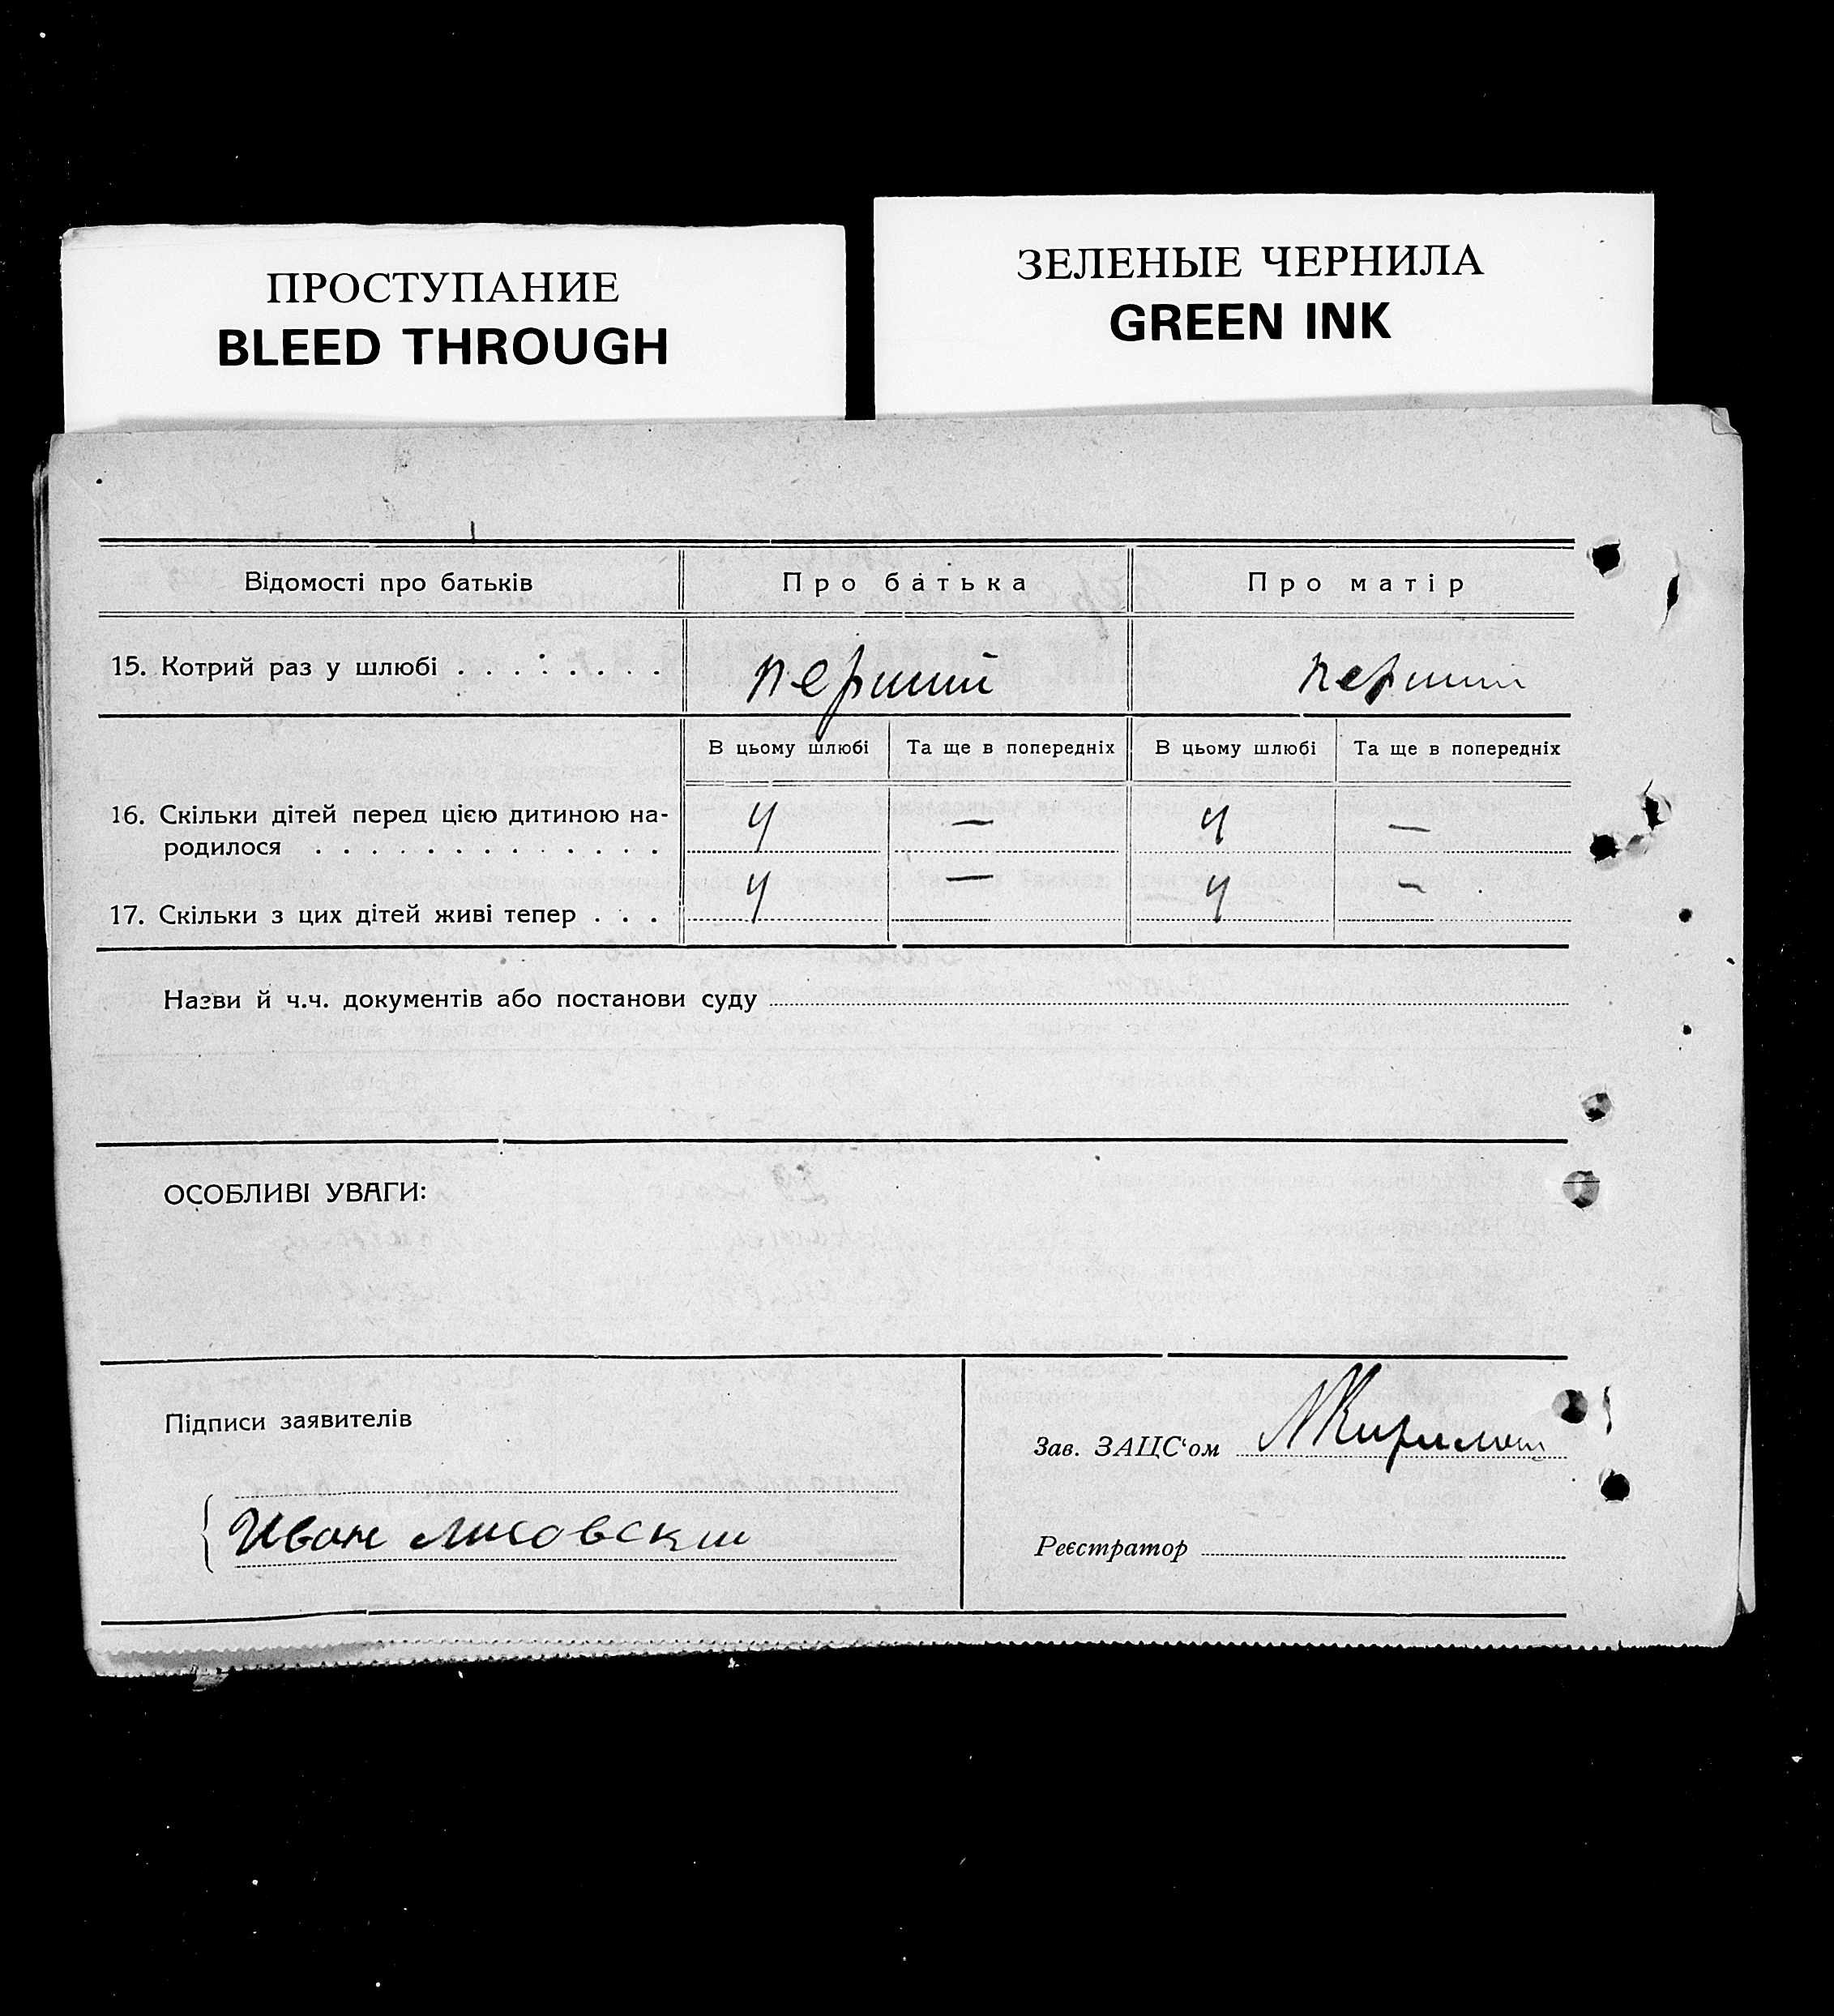 ПРОСТУПАНИЕ
BLEED THROUGH
ЗЕЛЕНЫЕ ЧЕРНИЛА
GREEN INK
Відомості про батьків Про батька Про матір
15. Котрий раз у шлюбі . . . . . . . . перший перший
В цьому шлюбі Та ще в попередніх В цьому шлюбі Та ще в попередніх
16. Скільки дітей перед цією дитиною на-
родилося . . . . . . . . . . . . . 4 — 4 —
17. Скільки з цих дітей живі тепер . . . 4 — 4 —
Назви й ч.ч. документів або постанови суду
ОСОБЛИВІ УВАГИ:
Підписи заявителів
Иван Лисовский
Зав. ЗАЦС‘ом
Реєстратор